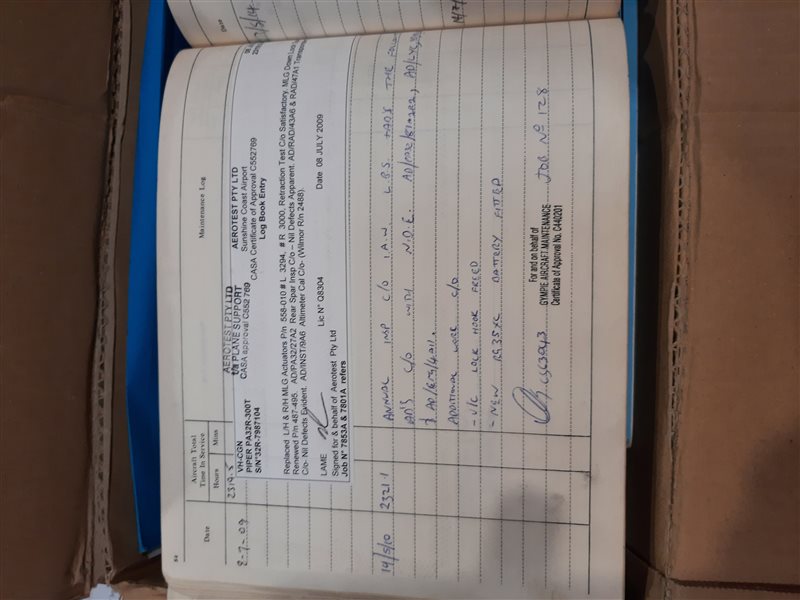 84
Maintenance Log
Date
Aircraft Total
Time In Service
Hours
Mins
8-7-09
2319.5
AEROTEST PTY LTD
PLANE SUPPORT
CASA approval C552769
VH-CGN
PIPER PA32R-300T
S/N°32R-7987104
AEROTEST PTY LTD
Sunshine Coast Airport
CASA Certificate of Approval C552769
Log Book Entry
Replaced L/H & R/H MLG Actuators P/n 558-010 # L 3294, # R 3000, Retraction Test C/o Satisfactory, MLG Down Lock
Renewed P/n 487-495. AD/PA32/27A2 Rear Spar Insp C/o – Nil Defects Apparent. AD/RAD/43A6 & RAD/47A1 Transponder
C/o- Nil Defects Evident. AD/INST/9A6 Altimeter Cal C/o- (Wilmor R/n 2488).
LAME
Lic N° Q8304
Date 08 JULY 2009
Signed for & behalf of Aerotest Pty Ltd
Job N° 7853A & 7801A refers
19/5/10
2321.1
ANNUAL INSP C/O I.A.W. L.B.S. +AD'S THE
AD'S C/O WITH N.D.E.
& AD/
ADDITIONAL WORK C/O
- U/C LOCK HOOK FREED
- NEW RG35XC BATTERY FITTED
For and on behalf of
GYMPIE AIRCRAFT MAINTENANCE
Certificate of Approval No. C440201
JOB Nº 128
Date